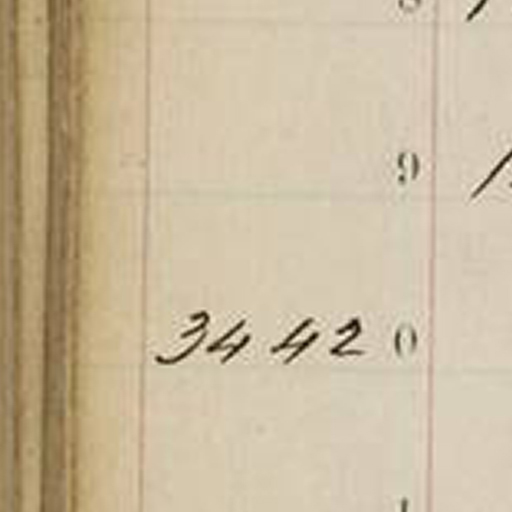 8
9
3442 0